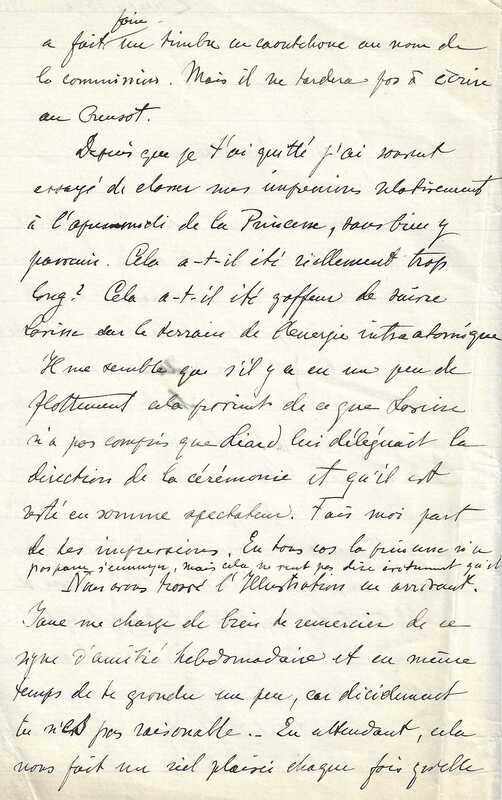 faire
a fait un timbre en caoutchouc au nom de
la commission. Mais il ne tardera pas à écrire
au Creusot.
Depuis que je t'ai quitté j'ai souvent
essayé de classer mes impressions relativement
à l'apremmidi de la Princesse, sans bien y
parvenir. Cela a-t-il été réellement trop
long? Cela a-t-il été gaffeur de suivre
sur le terrain de l'énergie intraatomique
Il me semble que s'il y a eu un peu de
flottement cela provient de ce que
n'a pas compris que Liard lui déléguait la
direction de la cérémonie et qu'il est
resté en somme spectateur. Fais moi part
de tes impressions. En tous cas la princesse n'a
pas paru s'ennuyer, mais cela ne veut pas dire évidemment qu'il
Nous avons trouvé l'Illustration en arrivant.
Jane me charge de bien te remercier de ce
signe d'amitié hebdomadaire et en même
temps de te gronder un peu, car décidément
tu n'es pas raisonable. - En attendant, cela
nous fait un réel plaisir chaque fois qu'elle